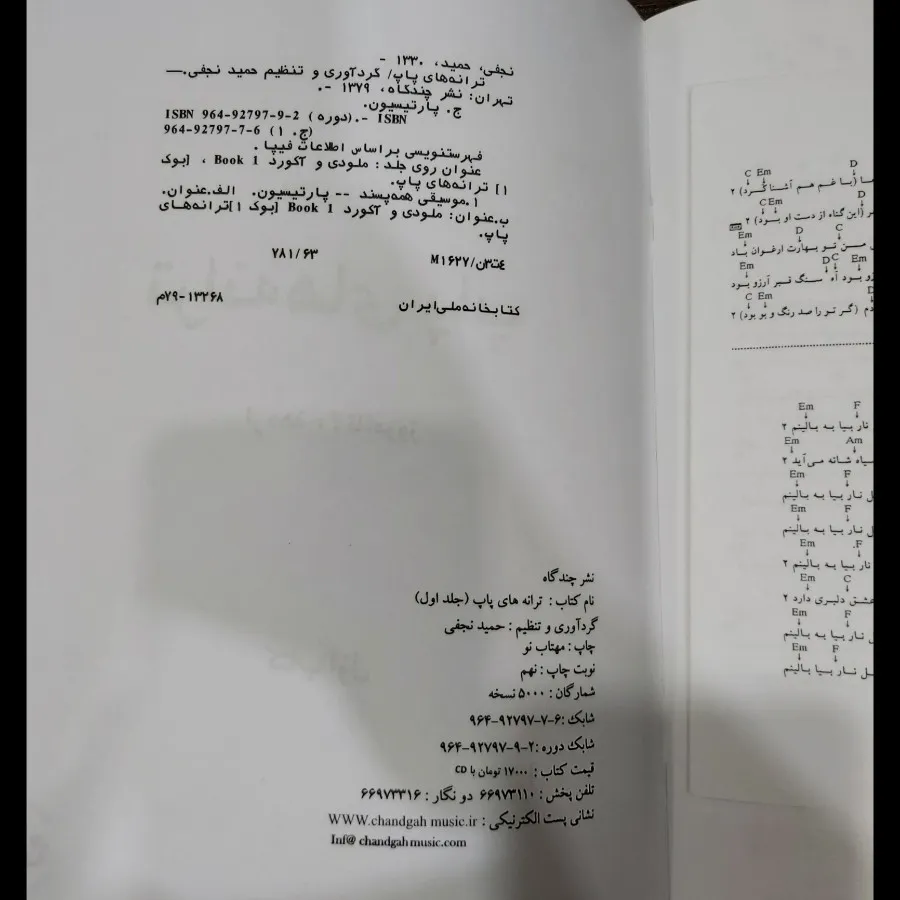 نجفی، حمید، ۱۳۳۰ -
ترانه‌های پاپ/ گردآوری و تنظیم حمید نجفی.—
تهران: نشر چندگاه، ۱۳۷۹ -.
ج. پارتیسیون.
ISBN 964-92797-9-2 (دوره).- ISBN
964-92797-7-6 (ج. ۱)
فهرستنویسی براساس اطلاعات فیپا.
عنوان روی جلد: ملودی و آکورد Book 1 ، [بوک
۱] ترانه‌های پاپ.
۱.موسیقی همه‌پسند -- پارتیسون. الف.عنوان.
ب.عنوان: ملودی و آکورد Book 1 [بوک ۱]ترانه‌های
پاپ.
۷۸۱/۶۳
M۱۶۲۷/ن۳ت۴
۷۹-۱۳۲۶۸م
کتابخانه ملی ایران
نشر چندگاه
نام کتاب : ترانه های پاپ (جلد اول)
گردآوری و تنظیم : حمید نجفی
چاپ : مهتاب نو
نوبت چاپ : نهم
شمارگان : ۵۰۰۰ نسخه
شابک :۶-۷-۹۲۷۹۷-۹۶۴
شابک دوره :۲-۹-۹۲۷۹۷-۹۶۴
قیمت کتاب : ۱۷۰۰۰ تومان با CD
تلفن پخش : ۶۶۹۷۳۱۱۰ دو نگار : ۶۶۹۷۳۳۱۶
نشانی پست الکترنیکی : WWW.chandgah music.ir
Inf@ chandgahmusic.com
D
C Em
(با غم هم آشنا کرد) ۲
C Em D
(این گناه از دست او بود) ۲
Em D C
من تو بهارت ارغوان باد
Em D C Em
بود آه سنگ قبر آرزو بود
C Em D
(گر تو را صد رنگ و بو بود) ۲
Em F
نار بیا به بالینم ۲
Em Am
سیاه شانه می‌آید ۲
Em F
نار بیا به بالینم
Em F
نار بیا به بالینم
Em F
نار بیا به بالینم ۲
Em C
عشق دلبری دارد ۲
Em F
نار بیا به بالینم
Em F
نار بیا بالینم